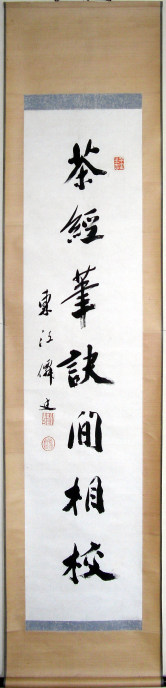 茶經筆訣間相校
東江僻叟